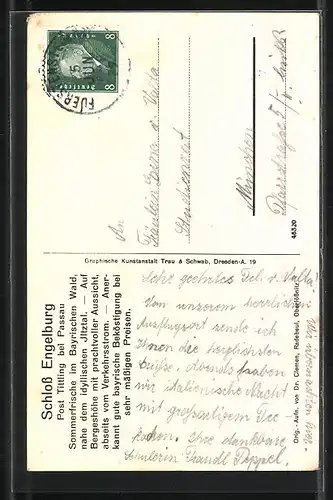 Schloß Engelburg
Post Tittling bei Passau
Sommerfrische im Bayrischen Wald,
nahe dem idyllischen Jlztal. — Auf
Bergeshöhe mit prachtvoller Aussicht,
abseits vom Verkehrsstrom. — Aner-
kannt gute bayrische Beköstigung bei
sehr mäßigen Preisen.
Sehr geehrtes Frl. v. Valta!
Von unserem herrlichen
Ausflugsort sende ich
Ihnen die herzlichsten
Grüße. Abends haben
wir italienische Nacht
mit großartigem
Ihre dankbare
Schülerin Traudl Poppel.
Graphische Kunstanstalt Trau & Schwab, Dresden-A. 19
An
Fräulein v. Valta
Studienrat
München
48520
Orig.-Aufn. von Dr. Clemen, Radebeul, Oberlößnitz
8 Deutsches Reich 8
FUERS